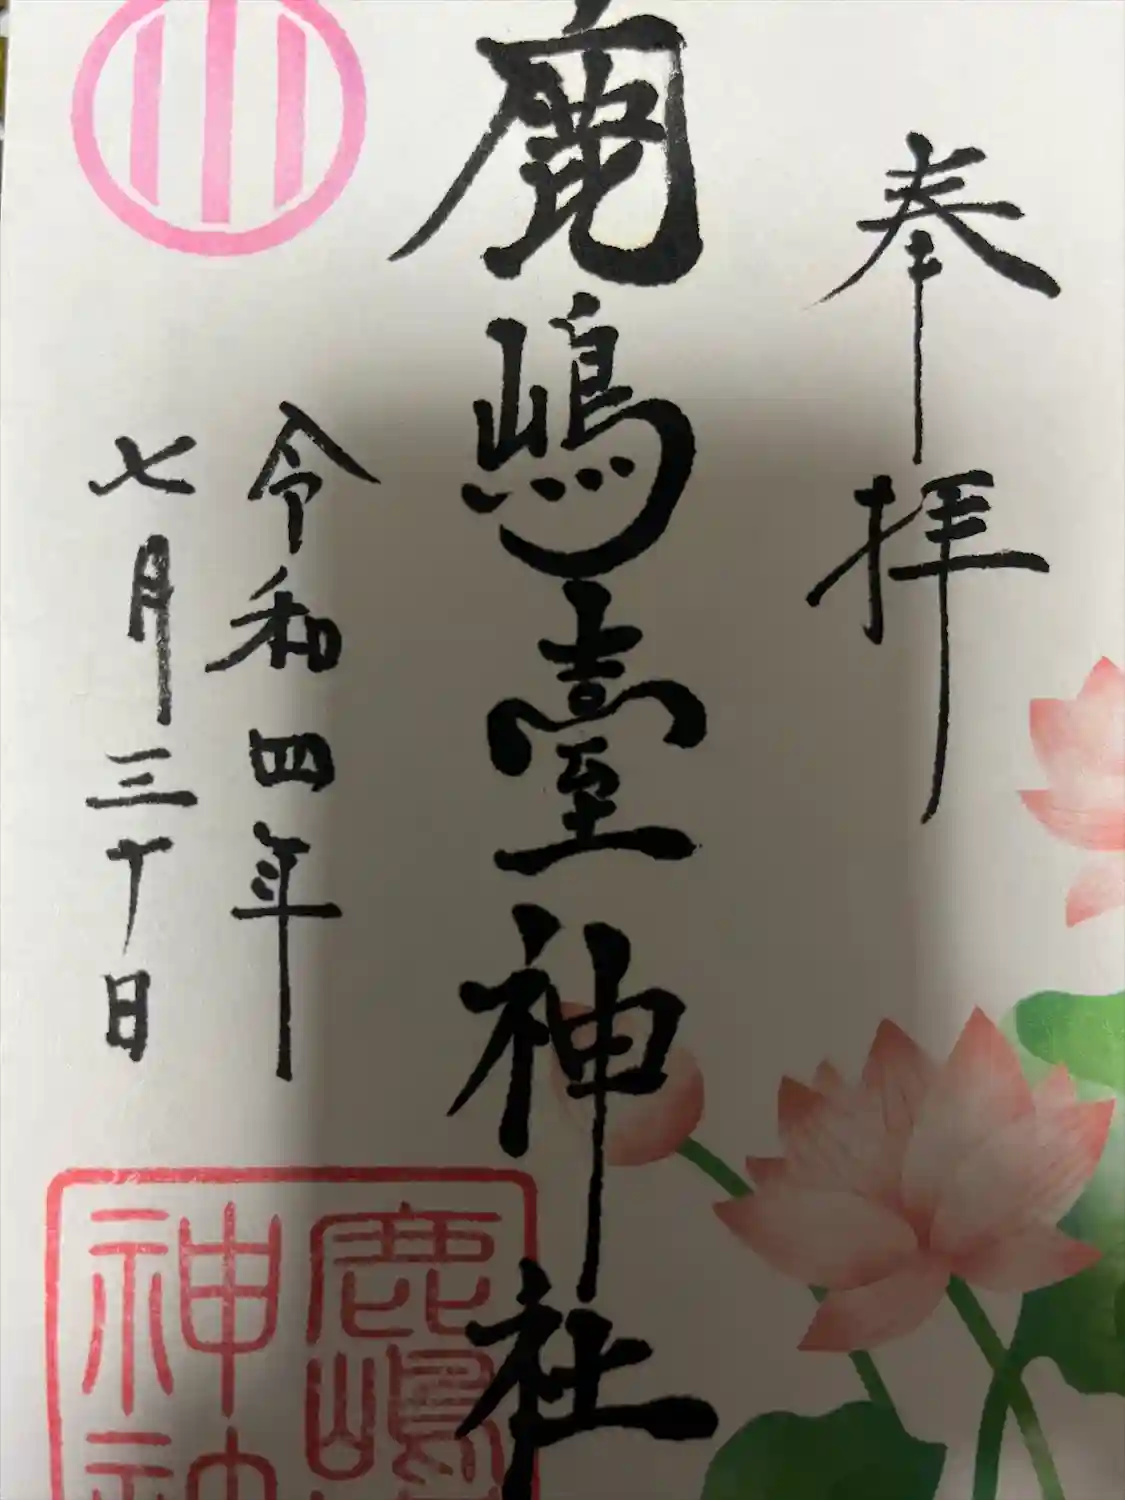 奉拝
鹿嶋臺神社
令和四年
七月三十日
鹿嶋
神